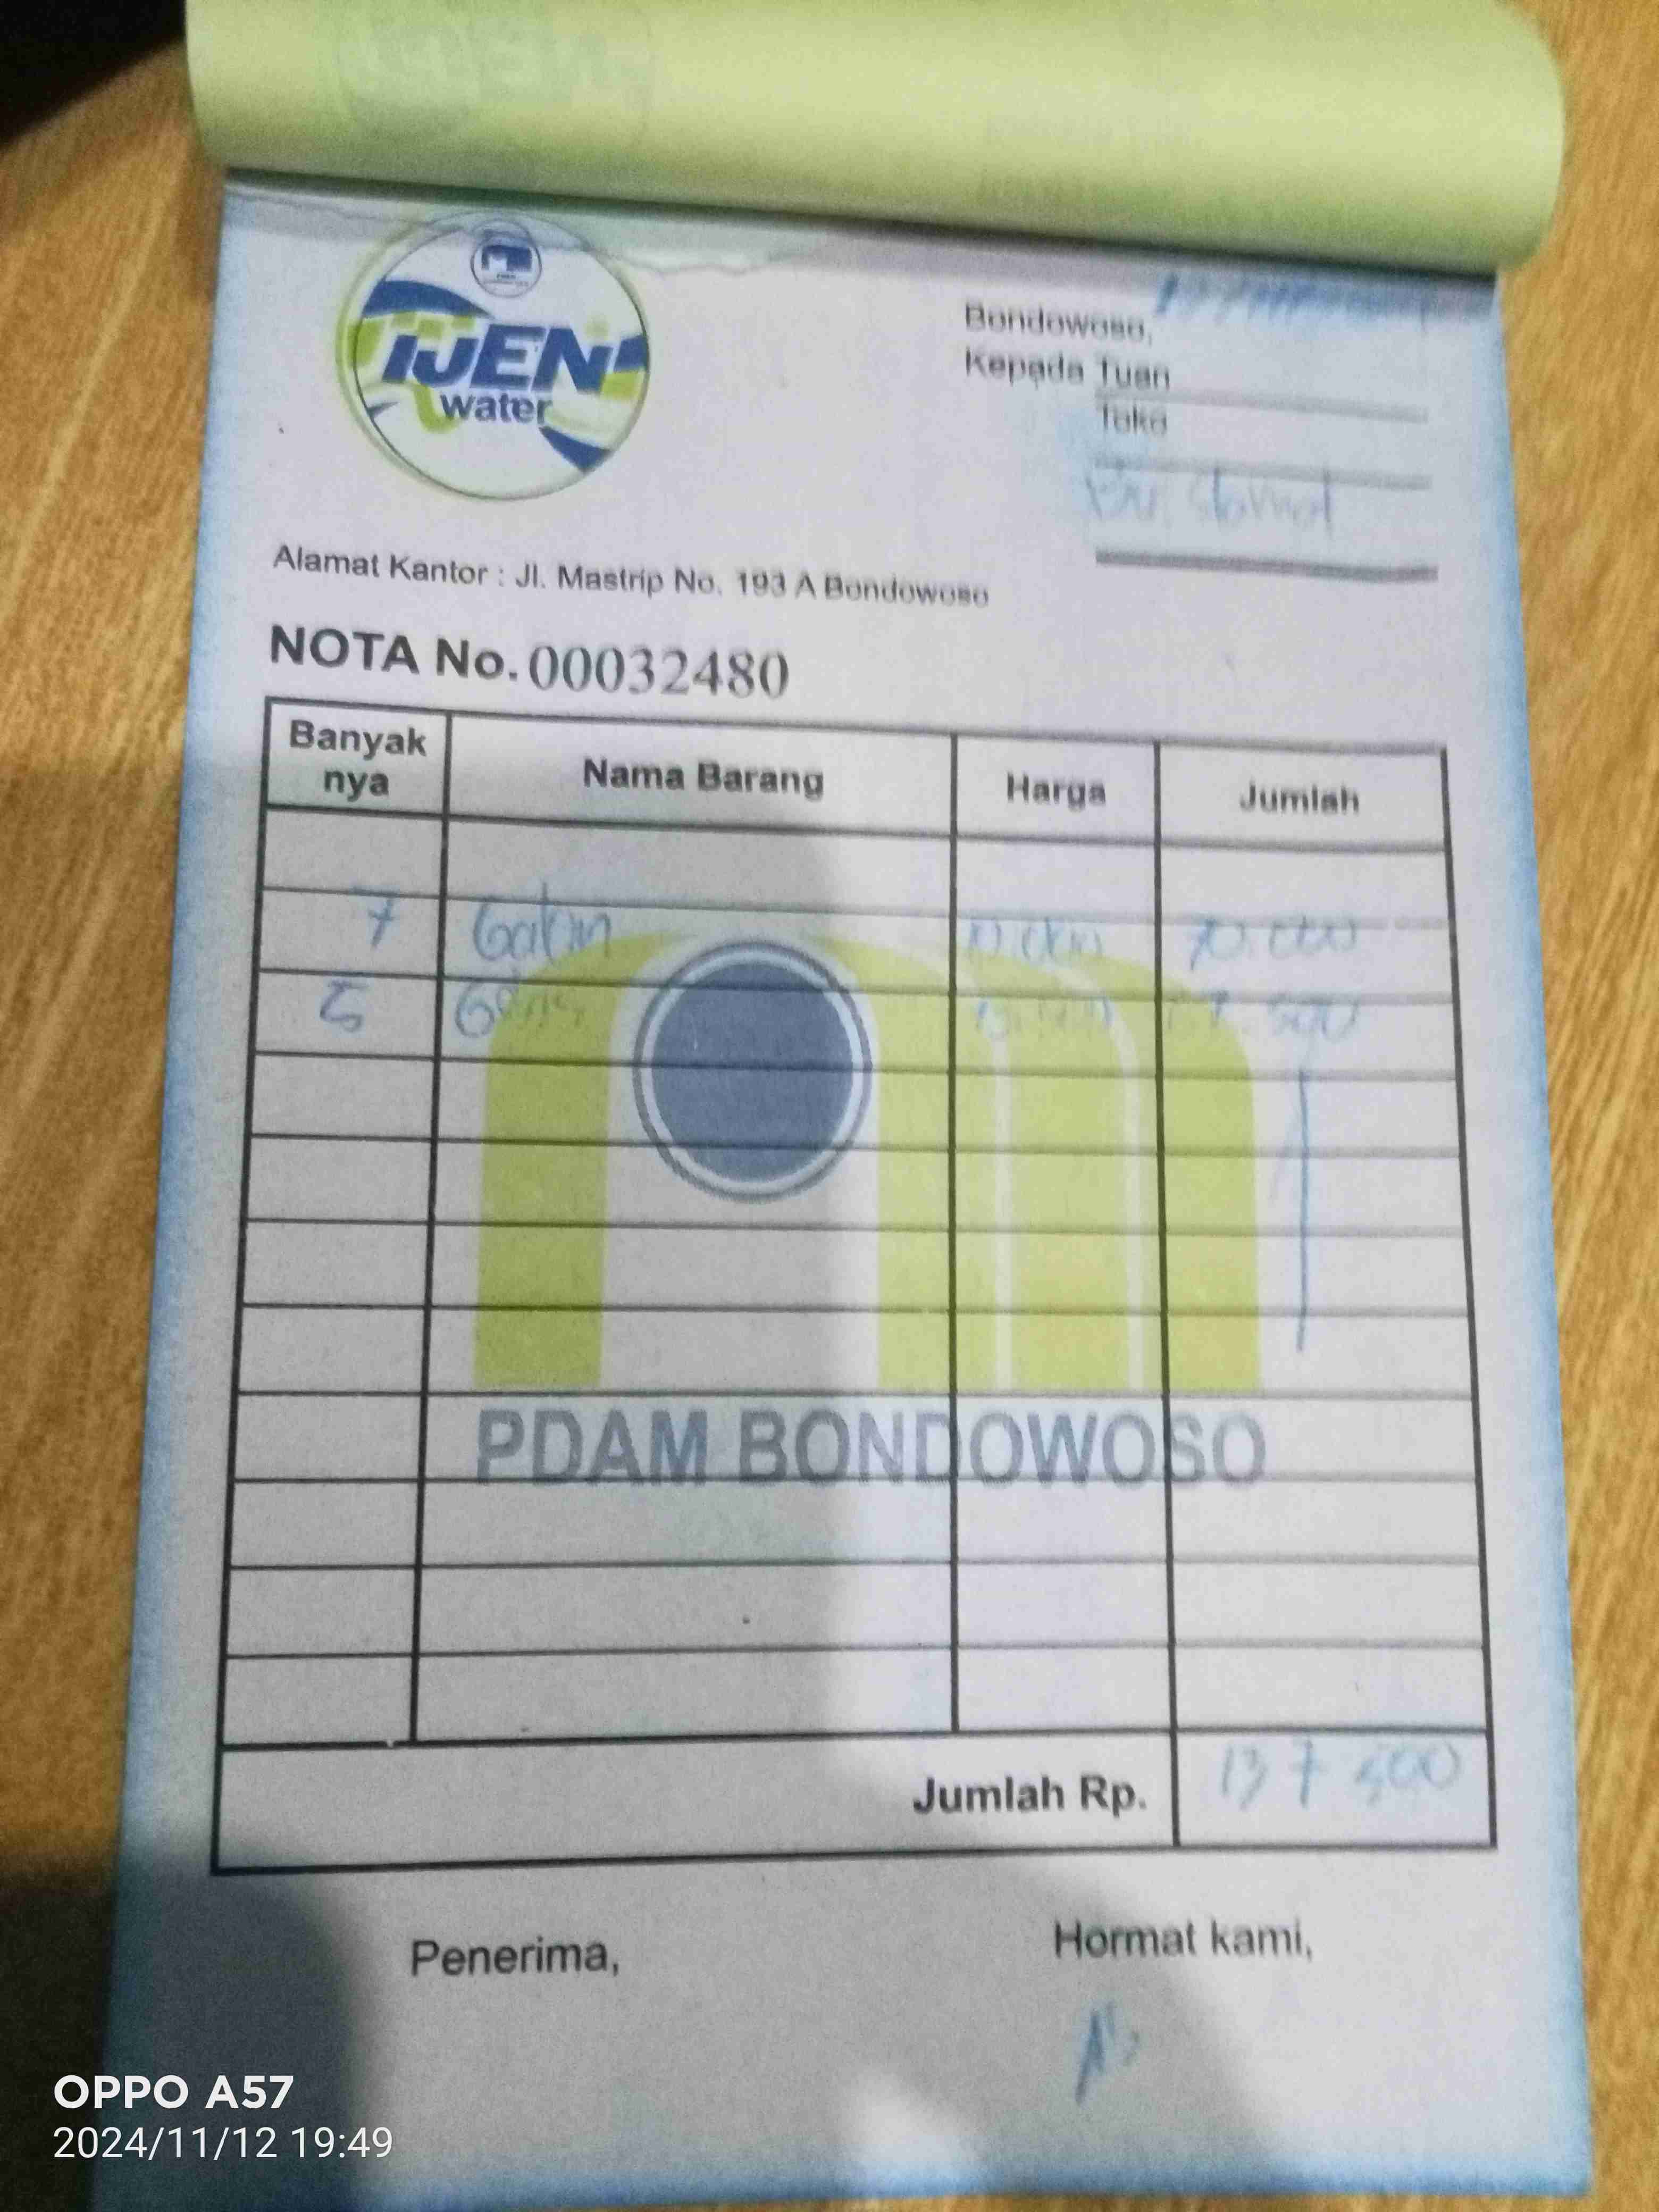 IJEN
water
Bondowoso,
Kepada Tuan
Toko
Bu Slamet
Alamat Kantor : Jl. Mastrip No. 193 A Bondowoso
NOTA No. 00032480
Banyak nya Nama Barang Harga Jumlah
7 Galon 10.000 70.000
5 67.500
PDAM BONDOWOSO
Jumlah Rp. 137 500
Penerima, Hormat kami,
OPPO A57
2024/11/12 19:49